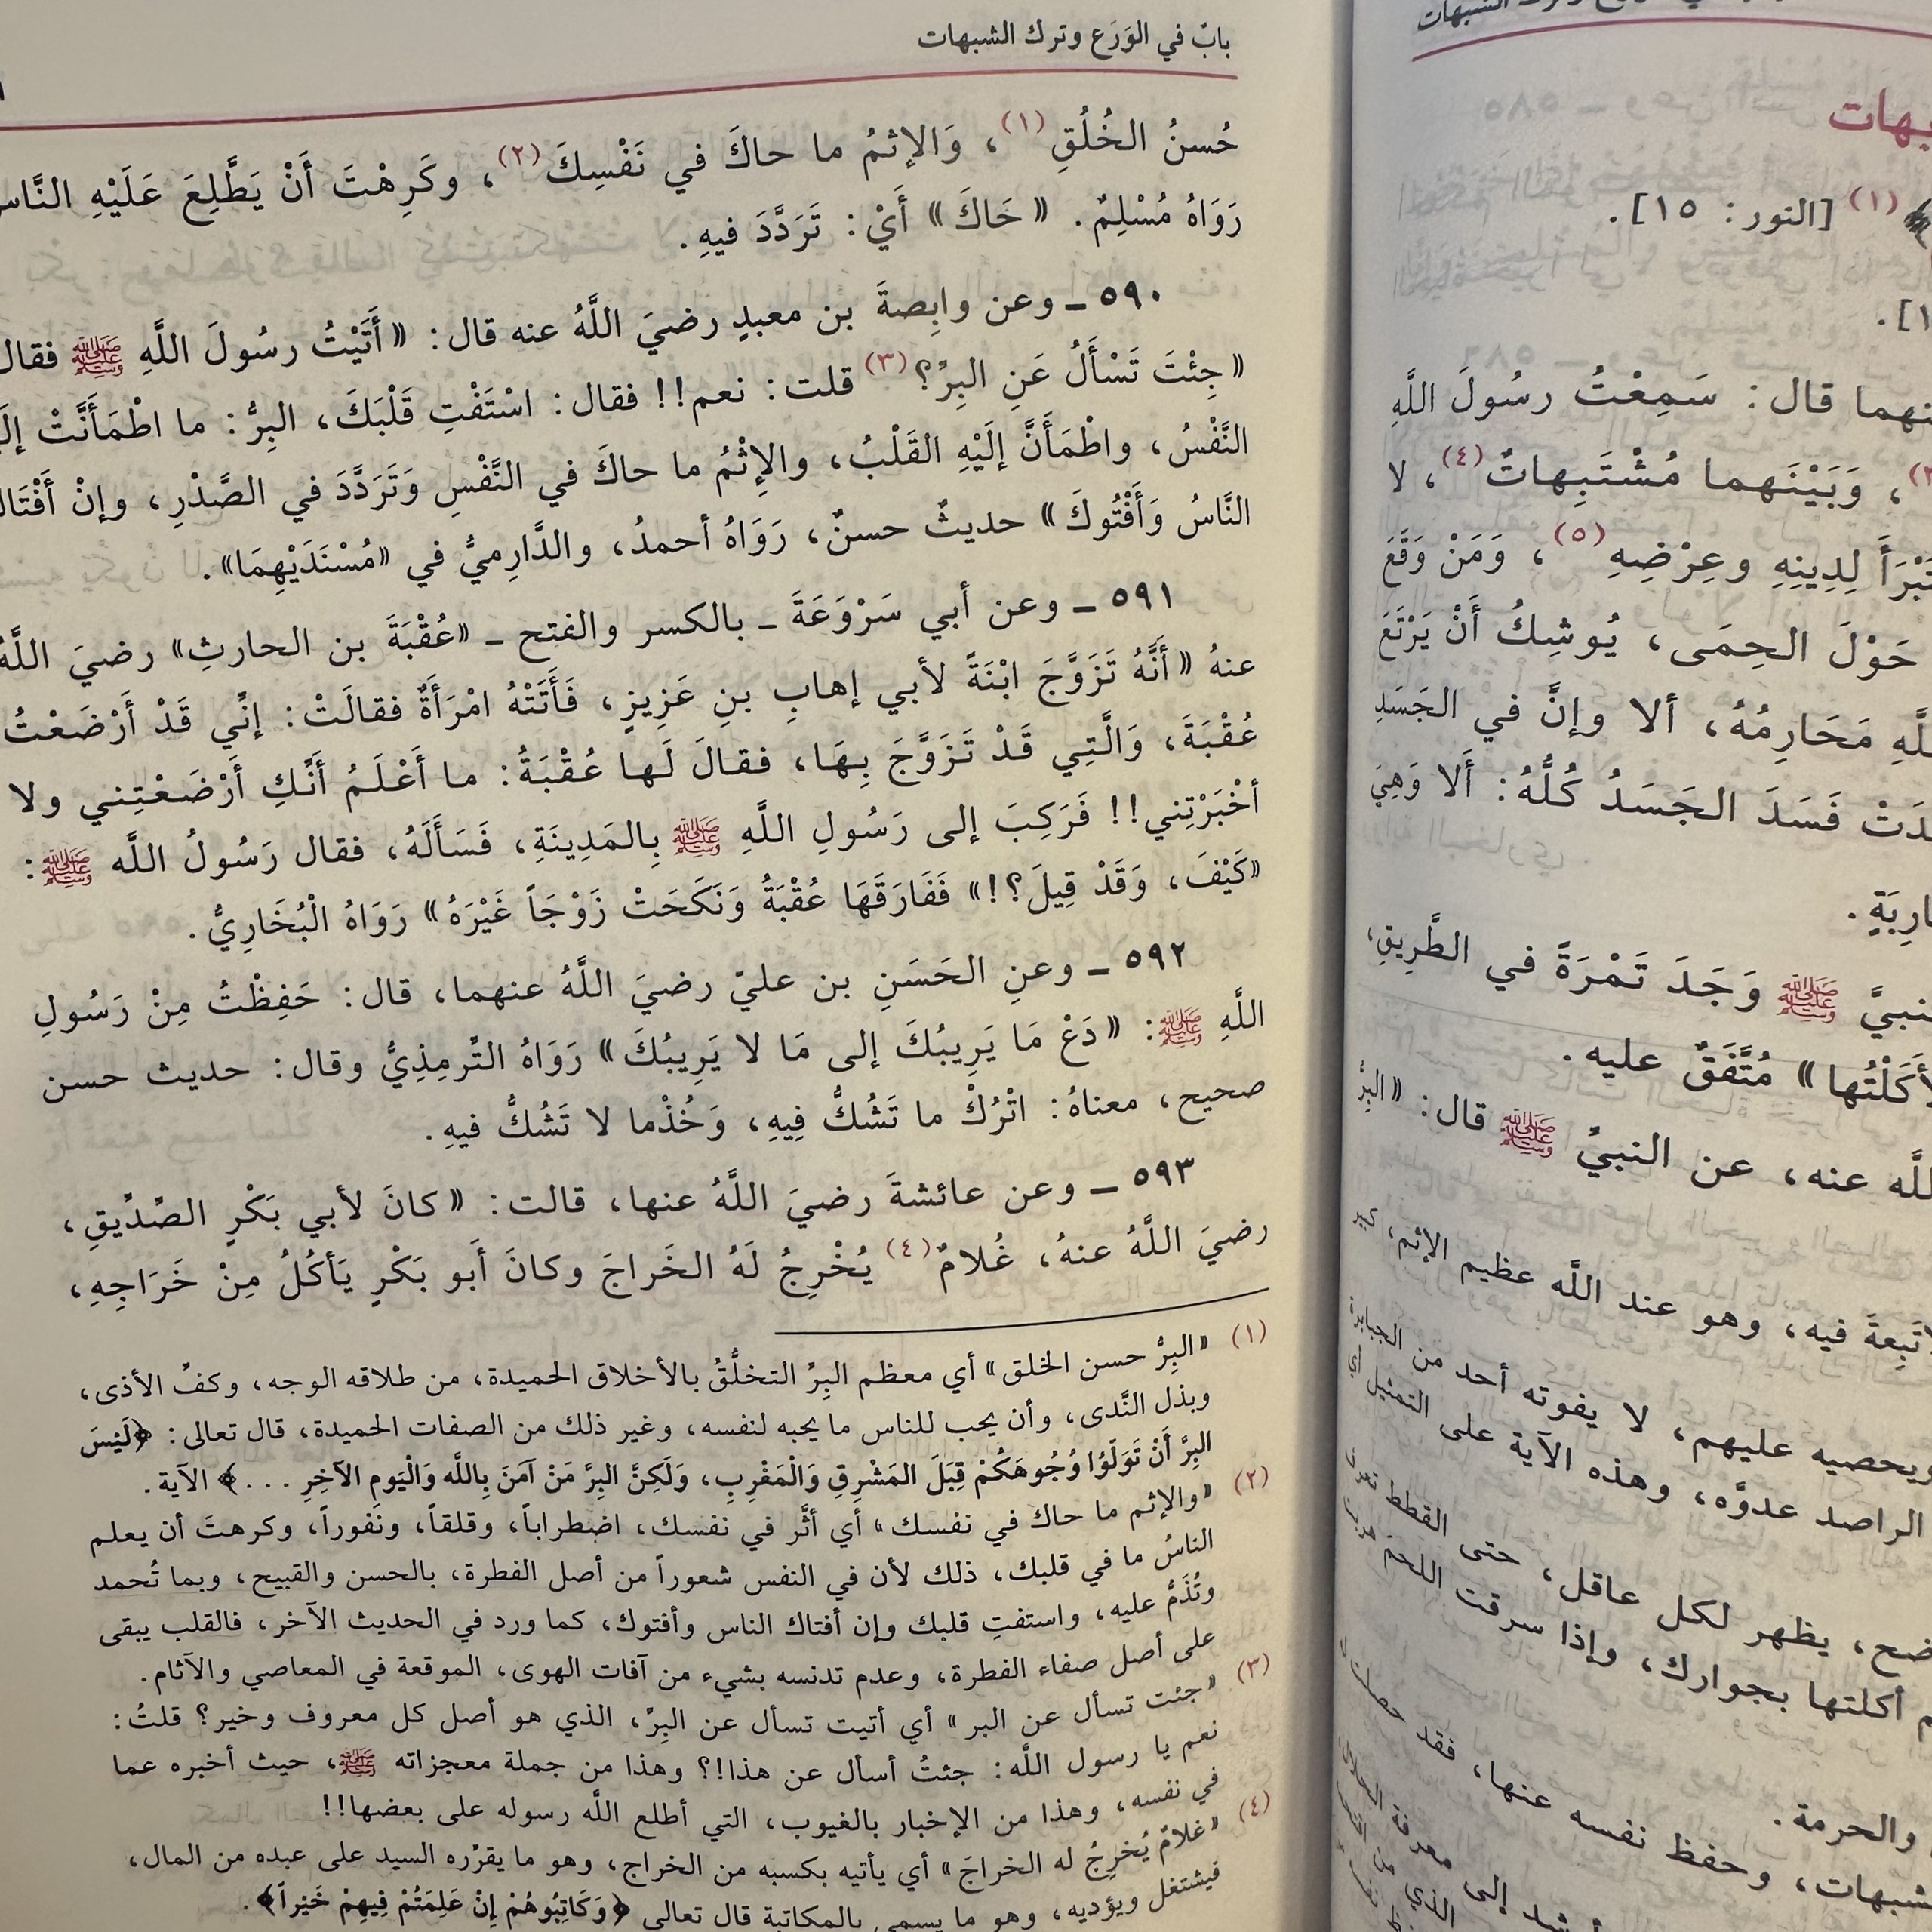 الشبهات
بهات
﴾(١) [النور: ١٥].
١].
نهما قال: سَمِعْتُ رسُولَ اللَّهِ
، وَبَيْنَهما مُشْتَبِهاتٌ(٤)، لا
تَبْرَأَ لِدِينِهِ وعِرْضِهِ(٥)، وَمَنْ وَقَعَ
حَوْلَ الحِمَى، يُوشِكُ أَنْ يَرْتَعَ
للَّهِ مَحَارِمُهُ، ألا وإنَّ في الجَسَدِ
دَتْ فَسَدَ الجَسَدُ كُلُّهُ: أَلا وَهِيَ
ارِبَةٍ.
نبيَّ ﷺ وَجَدَ تَمْرَةً في الطَّرِيقِ،
لأَكَلْتُها» مُتَّفَقٌ عليه.
للَّه عنه، عن النبيِّ ﷺ قال: «البِرُّ
لاتَبِعةَ فيه، وهو عند اللَّه عظيم الإثم، كبير
ويحصيه عليهم، لا يفوته أحد من الجبابرة.
الراصد عدوَّه، وهذه الآية على التمثيل أي
ضح، يظهر لكل عاقل، حتى القطط
م أكلتها بجوارك، وإذا سرقت اللحم
والحرمة.
شبهات، وحفظ نفسه عنها، فقد
إلى معرفة
بابٌ في الوَرَع وترك الشبهات
حُسنُ الخُلُقِ(١)، وَالإثمُ ما حاكَ في نَفْسِكَ(٢)، وكَرِهْتَ أَنْ يَطَّلِعَ عَلَيْهِ النَّاس
رَوَاهُ مُسْلِمٌ. «حَاكَ» أَيْ: تَرَدَّدَ فيهِ.
٥٩٠ ـ وعن وابِصةَ بن معبدٍ رضيَ اللَّهُ عنه قال: «أَتَيْتُ رسُولَ اللَّهِ ﷺ فقال
«جِئْتَ تَسْأَلُ عَنِ البِرِّ؟(٣) قلت: نعم!! فقال: اسْتَفْتِ قَلْبَكَ، البِرُّ: ما اطْمَأَنَّتْ إلَ
النَّفْسُ، واطْمَأَنَّ إلَيْهِ القَلْبُ، والإِثْمُ ما حاكَ في النَّفْسِ وَتَرَدَّدَ في الصَّدْرِ، وإنْ أَفْتَا
النَّاسُ وَأَفْتُوكَ» حديثٌ حسنٌ، رَوَاهُ أحمدُ، والدَّارِميُّ في «مُسْنَدَيْهِمَا».
٥٩١ ـ وعن أبي سَرْوَعَةَ ـ بالكسر والفتح ـ «عُقْبَةَ بن الحارثِ» رضيَ اللَّهُ
عنهُ «أَنَّهُ تَزَوَّجَ ابْنَةً لأبي إهابِ بنِ عَزِيزٍ، فَأَتَتْهُ امْرَأَةٌ فقالَتْ: إنِّي قَدْ أَرْضَعْتُ
عُقْبَةَ، وَالَّتِي قَدْ تَزَوَّجَ بِهَا، فقالَ لَها عُقْبَةُ: ما أَعْلَمُ أَنَّكِ أَرْضَعْتِني ولا
أخْبَرْتِني!! فَرَكِبَ إلى رَسُولِ اللَّهِ ﷺ بِالمَدِينَةِ، فَسَأَلَهُ، فقال رَسُولُ اللَّه ﷺ:
«كَيْفَ، وَقَدْ قِيلَ؟!» فَفَارَقَهَا عُقْبَةُ وَنَكَحَتْ زَوْجَاً غَيْرَهُ» رَوَاهُ الْبُخَارِيُّ.
٥٩٢ ـ وعنِ الحَسَنِ بن عليّ رضيَ اللَّهُ عنهما، قال: حَفِظْتُ مِنْ رَسُولِ
اللَّهِ ﷺ: «دَعْ مَا يَرِيبُكَ إلى مَا لا يَرِيبُكَ» رَوَاهُ التِّرمِذِيُّ وقال: حديث حسن
صحيح، معناهُ: اتْرُكْ ما تَشُكُّ فِيهِ، وَخُذْما لا تَشُكُّ فيهِ.
٥٩٣ ـ وعن عائشةَ رضيَ اللَّهُ عنها، قالت: «كانَ لأبي بَكْرٍ الصِّدِّيقِ،
رضيَ اللَّهُ عنهُ، غُلامٌ(٤) يُخْرِجُ لَهُ الخَراجَ وكانَ أَبو بَكْرٍ يَأكُلُ مِنْ خَرَاجِهِ،
(١) «البِرُّ حسن الخلق» أي معظم البِرِّ التخلُّقُ بالأخلاق الحميدة، من طلاقه الوجه، وكفِّ الأذى،
وبذل النَّدى، وأن يحب للناس ما يحبه لنفسه، وغير ذلك من الصفات الحميدة، قال تعالى: ﴿لَيْسَ
البِرَّ أَنْ تَوَلَّوُا وُجُوهَكُمْ قِبَلَ المَشْرِقِ وَالْمَغْرِبِ، وَلَكِنَّ البِرَّ مَنْ آمَنَ بِاللَّه وَالْيَومِ الآخِرِ...﴾ الآية.
(٢) «والإثم ما حاك في نفسك» أي أثَّر في نفسك، اضطراباً، وقلقاً، ونَفوراً، وكرهتَ أن يعلم
الناسُ ما في قلبك، ذلك لأن في النفس شعوراً من أصل الفطرة، بالحسن والقبيح، وبما تُحمد
وتُذَمُّ عليه، واستفتِ قلبك وإن أفتاك الناس وأفتوك، كما ورد في الحديث الآخر، فالقلب يبقى
على أصل صفاء الفطرة، وعدم تدنسه بشيء من آفات الهوى، الموقعة في المعاصي والآثام.
(٣) «جئت تسأل عن البر» أي أتيت تسأل عن البِرِّ، الذي هو أصل كل معروف وخير؟ قلتُ:
نعم يا رسول اللَّه: جئتُ أسأل عن هذا!؟ وهذا من جملة معجزاته ﷺ، حيث أخبره عما
في نفسه، وهذا من الإخبار بالغيوب، التي أطلع اللَّه رسوله على بعضها!!
(٤) «غلامٌ يُخرِجُ له الخراجَ» أي يأتيه بكسبه من الخراج، وهو ما يقرِّره السيد على عبده من المال،
فيشتغل ويؤديه، وهو ما يسمى بالمكاتبة قال تعالى ﴿وَكَاتِبُوهُمْ إِنْ عَلِمَتُمْ فِيهِمْ خَيْراً﴾.